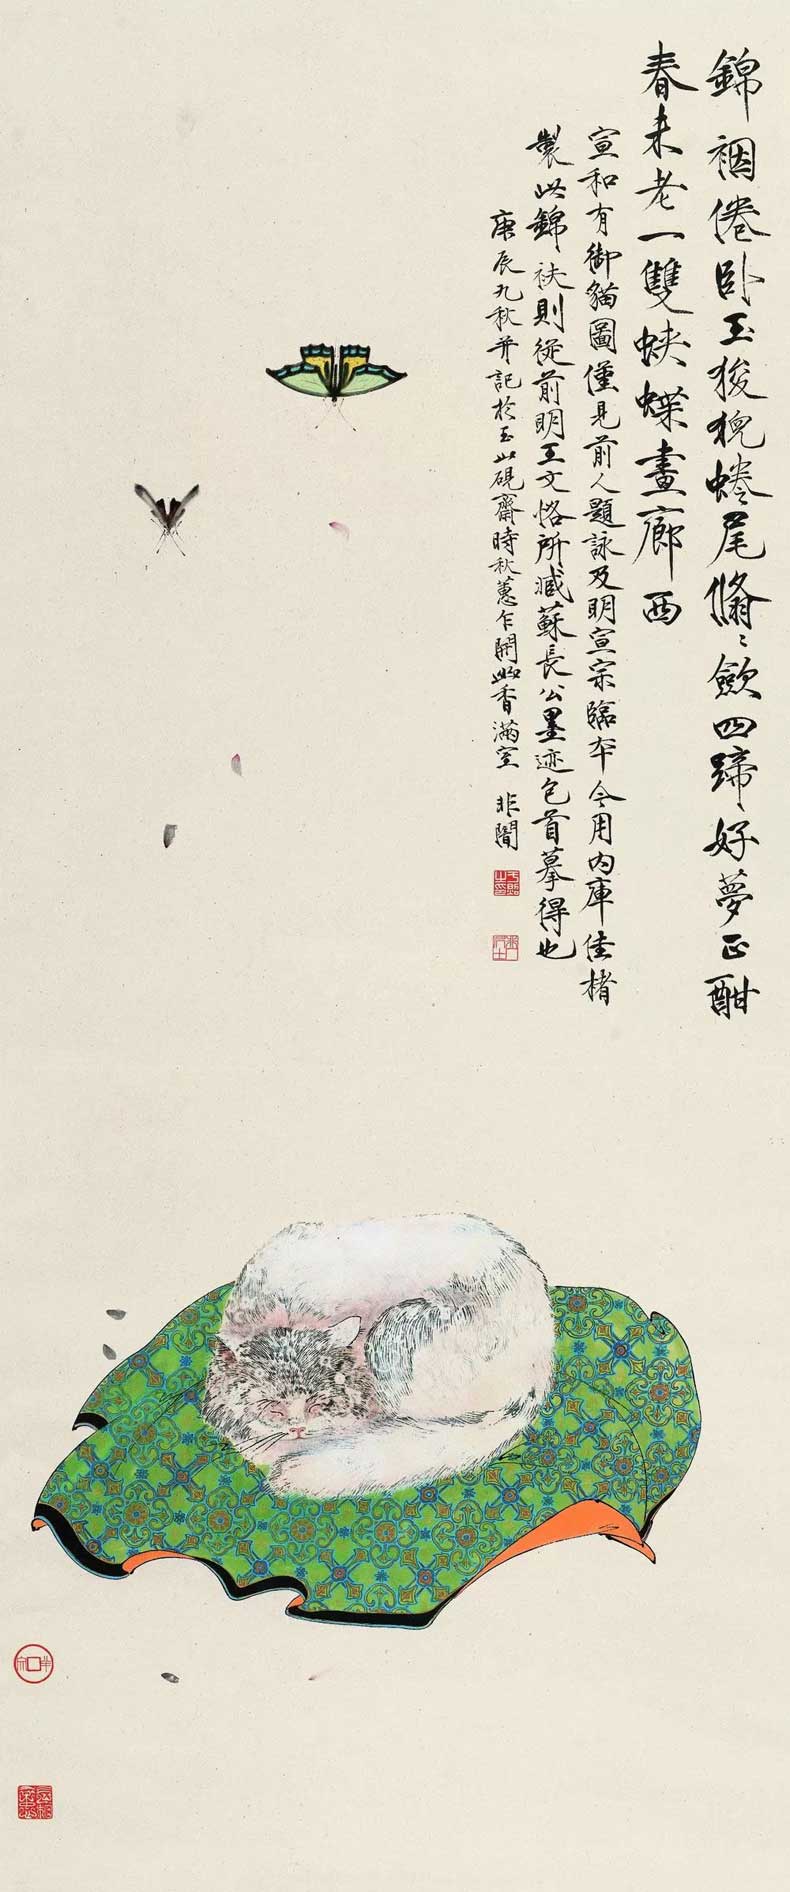 錦裀倦卧玉狻猊蜷尾翛翛斂四蹄好夢正酣
春未老一雙蛺蝶畫廊西
宣和有御貓圖僅見前人題詠及明宣宗臨本今用內庫佳楮
製此錦袱則從前明王文恪所臧蘇長公墨迹包首摹得也
庚辰九秋并記於玉山硯齋時秋蕙乍開幽香滿室 非闇